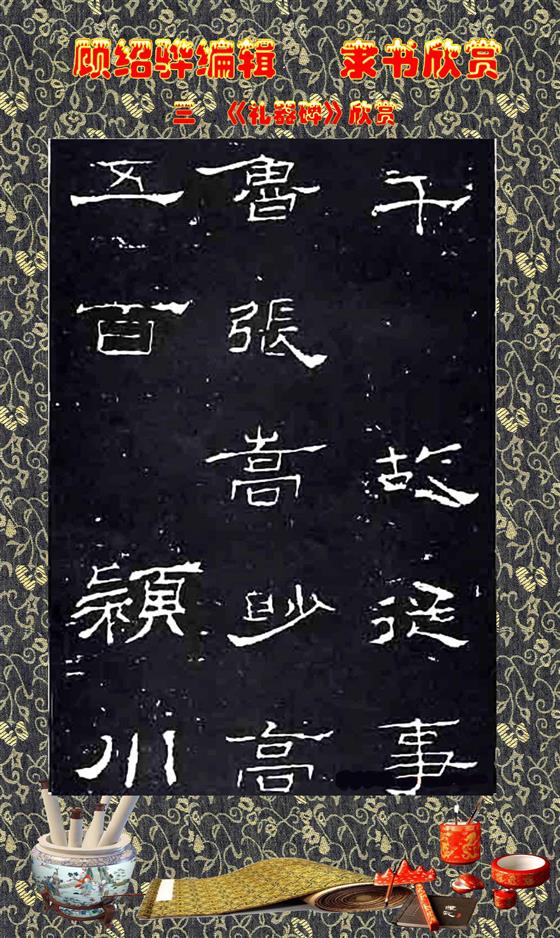 顾绍骅编辑 隶书欣赏
三 《礼器碑》欣赏
千 故從事
魯張嵩眇高
五百 穎川